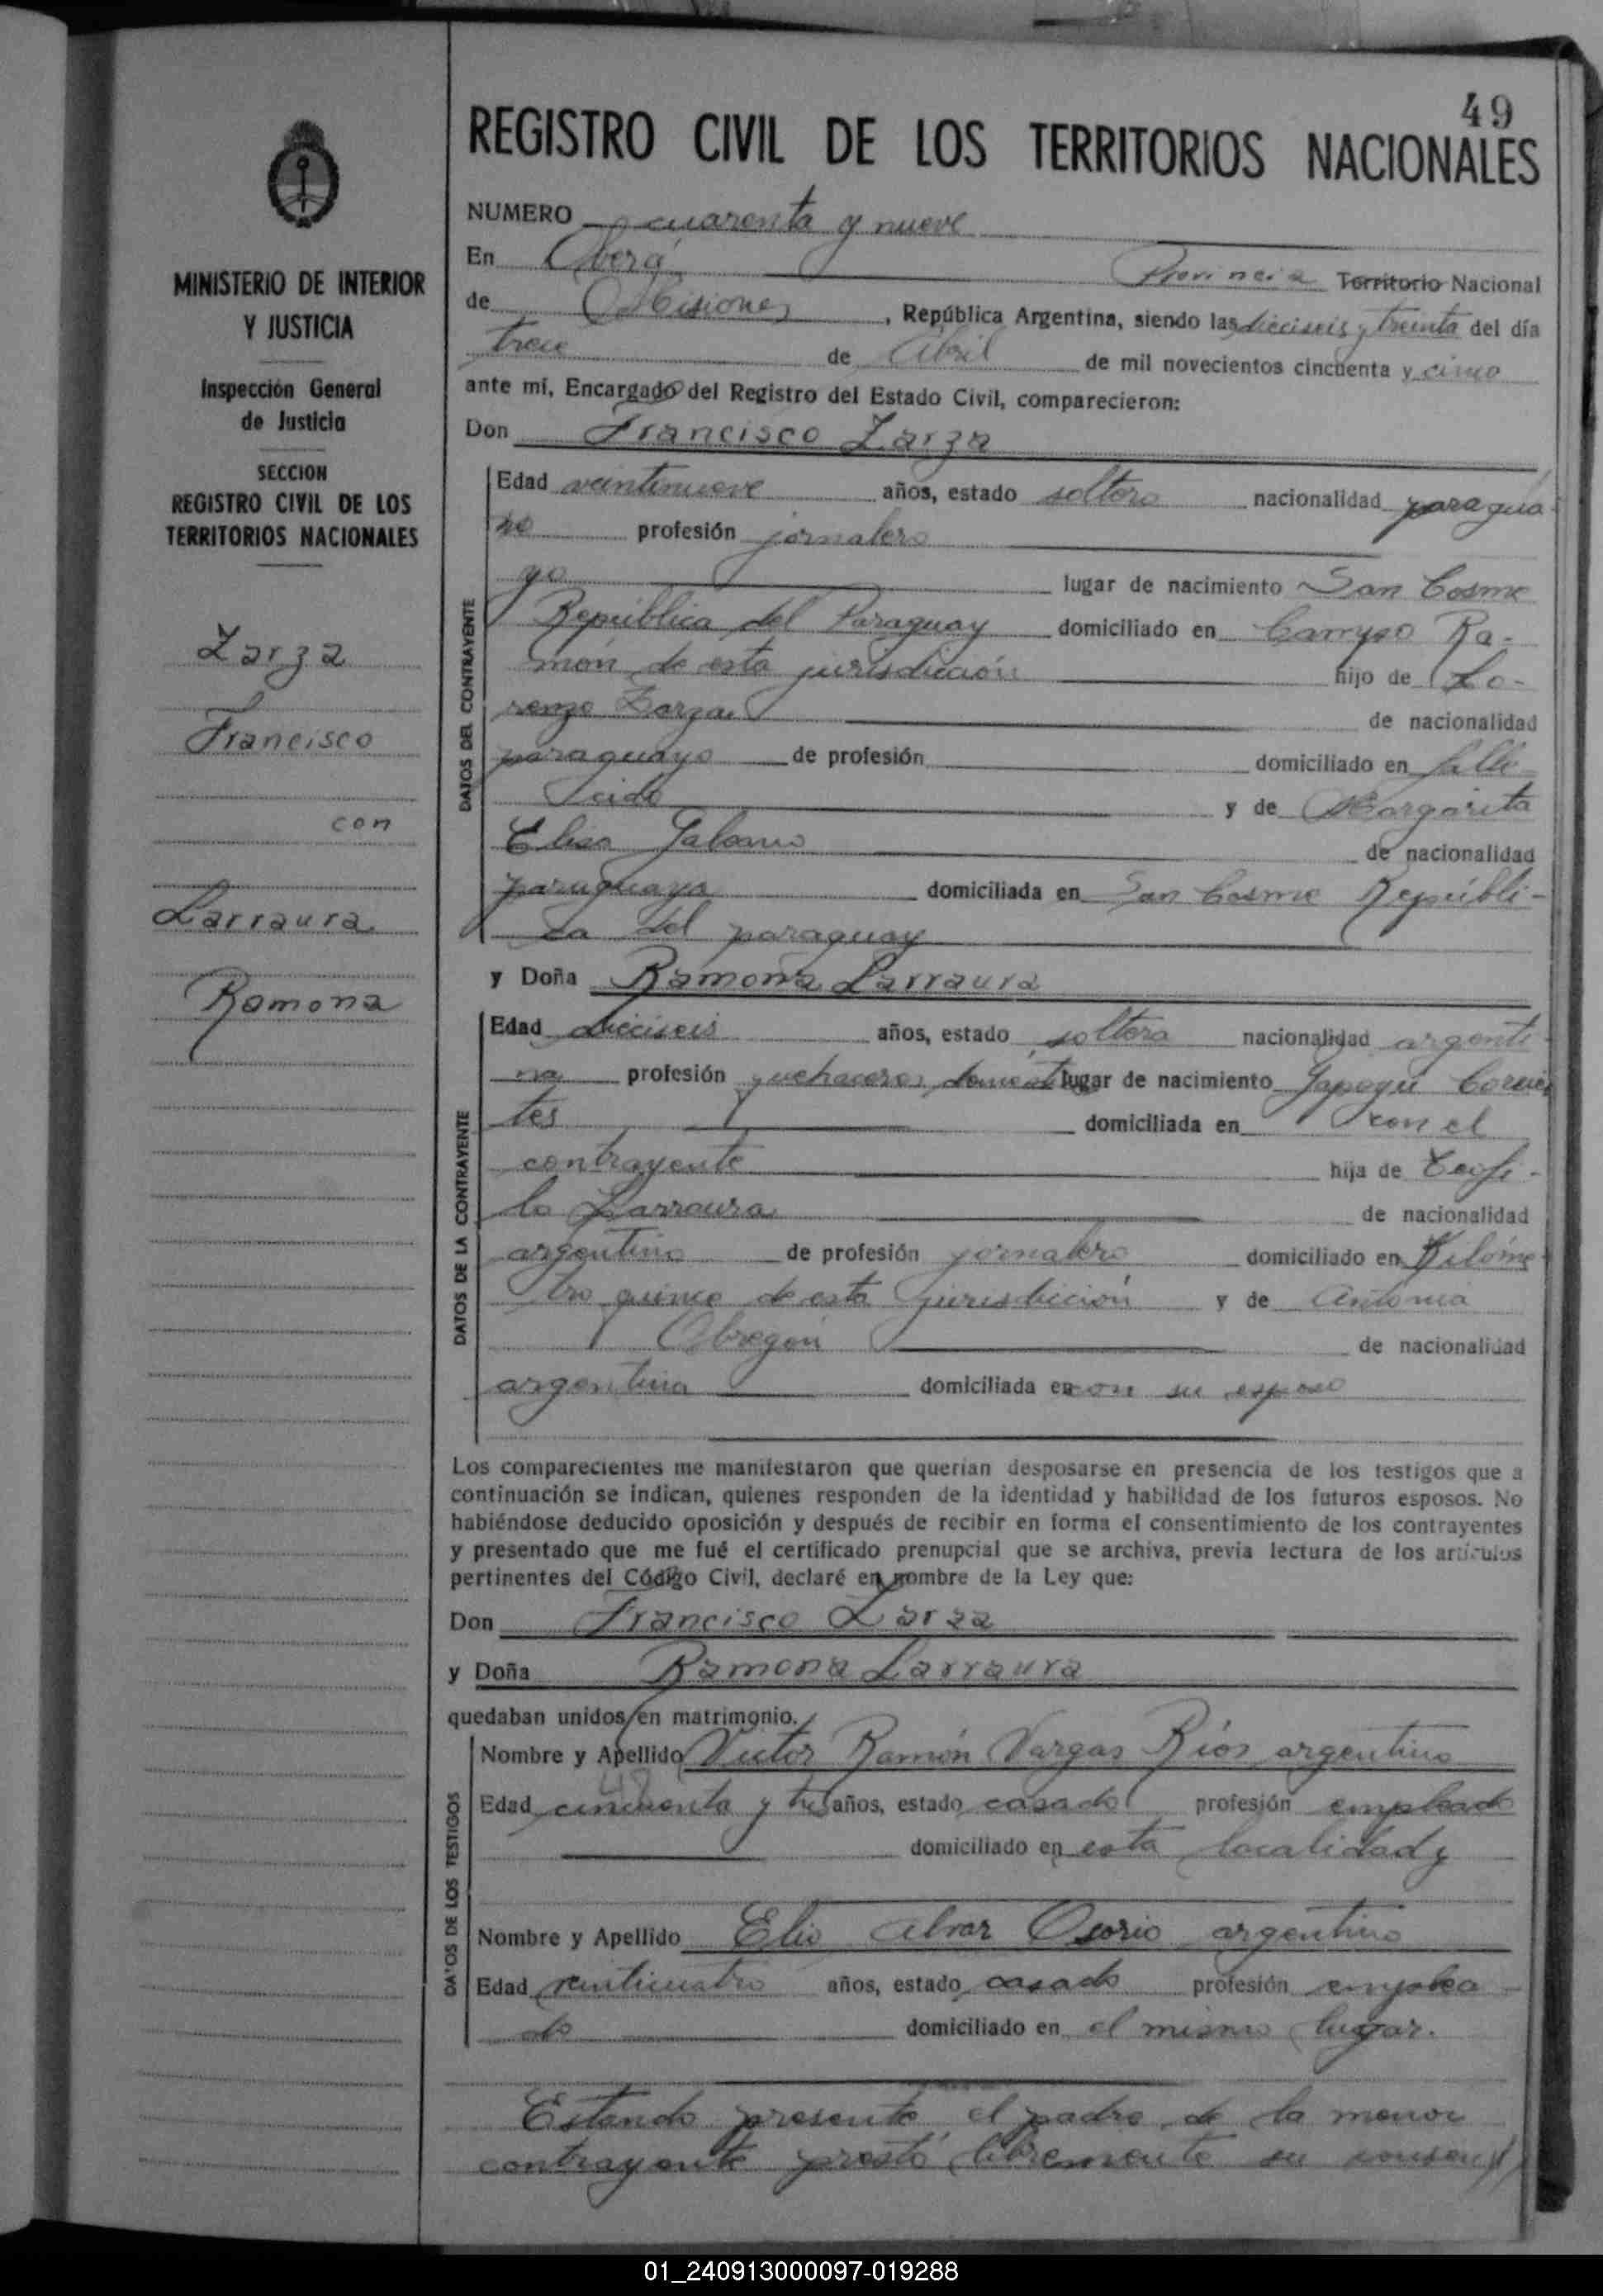 49
REGISTRO CIVIL DE LOS TERRITORIOS NACIONALES
MINISTERIO DE INTERIOR
Y JUSTICIA
Inspección General
de Justicia
SECCION
REGISTRO CIVIL DE LOS
TERRITORIOS NACIONALES
Zarza
Francisco
con
Larraura
Ramona
NUMERO cuarenta y nueve
En Oberá Provincia Territorio Nacional
de Misiones, República Argentina, siendo las dieciseis y treinta del día
trece de Abril de mil novecientos cincuenta y cinco
ante mí, Encargado del Registro del Estado Civil, comparecieron:
Don Francisco Zarza
DATOS DEL CONTRAYENTE
Edad veintinueve años, estado soltero nacionalidad paragua-
yo profesión jornalero
yo lugar de nacimiento San Cosme
República del Paraguay domiciliado en Ramón
món de esta jurisdicción hijo de Lo-
renzo Zarza de nacionalidad
paraguayo de profesión domiciliado en falle-
cido y de Margarita
Elisa Galeano de nacionalidad
paraguaya domiciliada en San Cosme Repúbli-
ca del paraguay
y Doña Ramona Larraura
DATOS DE LA CONTRAYENTE
Edad dieciseis años, estado soltera nacionalidad argenti-
na profesión quehaceres domest lugar de nacimiento Yapeyú Corrien
tes domiciliada en con el
contrayente hija de Teofi-
lo Larraura de nacionalidad
argentino de profesión jornalero domiciliado en Kilóme-
tro quince de esta jurisdicción y de Antonia
Obregón de nacionalidad
argentina domiciliada en con su esposo
Los comparecientes me manifestaron que querían desposarse en presencia de los testigos que a
continuación se indican, quienes responden de la identidad y habilidad de los futuros esposos. No
habiéndose deducido oposición y después de recibir en forma el consentimiento de los contrayentes
y presentado que me fué el certificado prenupcial que se archiva, previa lectura de los artículos
pertinentes del Código Civil, declaré en nombre de la Ley que:
Don Francisco Zarza
y Doña Ramona Larraura
quedaban unidos en matrimonio.
DATOS DE LOS TESTIGOS
Nombre y Apellido Victor Ramón Vargas Ríos argentino
48
Edad cincuenta y tres años, estado casado profesión empleado
domiciliado en esta localidad y
Nombre y Apellido Elio Alvar Osorio argentino
Edad veinticuatro años, estado casado profesión emplea-
do domiciliado en el mismo lugar.
Estando presente el padre de la menor
contrayente prestó libremente su consen//
01_240913000097-019288